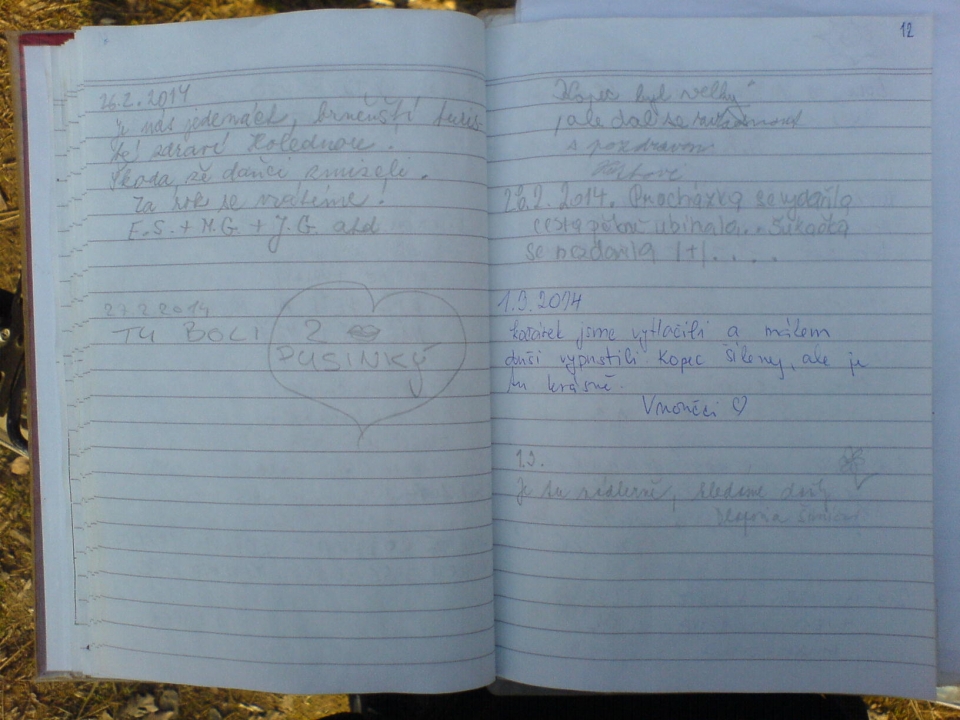 26.2.2014
Je nás jedenáct, brněnští turis
té, zdraví Holednou.
Škoda, že daňci zmizeli.
Za rok se vrátíme!
E.S. + M.G. + J.G. atd
27.2.2014
TU BOLI 2
PUSINKY
12
Kopec byl velký
, ale dal se
s pozdravem
28.2.2014. Procházka se vydařila
cesta pěkně ubíhala..
se nezdařila
1.3.2014
kočárek jsme vytlačili a málem
duši vypustili kopec šílený, ale je
tu krásně.
♡
1.3.
Je tu nádherně, hledáme